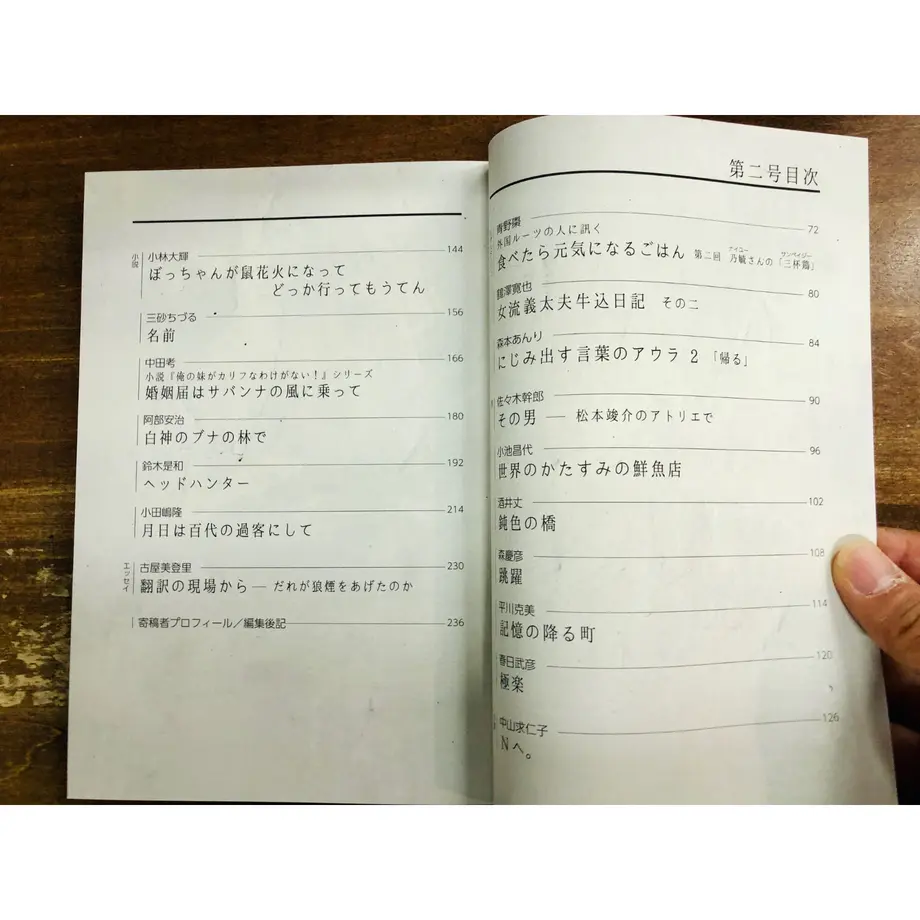 第二号目次
青野棗 72
外国ルーツの人に訊く
食べたら元気になるごはん 第二回 乃毓さんの「三杯鶏」
ナイユー サンベイジー
鶴澤寛也 80
女流義太夫牛込日記 その二
森本あんり 84
にじみ出す言葉のアウラ 2 「帰る」
佐々木幹郎 90
その男 ― 松本竣介のアトリエで
小池昌代 96
世界のかたすみの鮮魚店
酒井丈 102
鈍色の橋
森慶彦 108
跳躍
平川克美 114
記憶の降る町
春日武彦 120
極楽
中山求仁子 126
Nへ。
小説
小林大輝 144
ぼっちゃんが鼠花火になって
どっか行ってもうてん
三砂ちづる 156
名前
中田考 166
小説『俺の妹がカリフなわけがない!』シリーズ
婚姻届はサバンナの風に乗って
阿部安治 180
白神のブナの林で
鈴木是和 192
ヘッドハンター
小田嶋隆 214
月日は百代の過客にして
エッセイ
古屋美登里 230
翻訳の現場から ― だれが狼煙をあげたのか
寄稿者プロフィール/編集後記 236